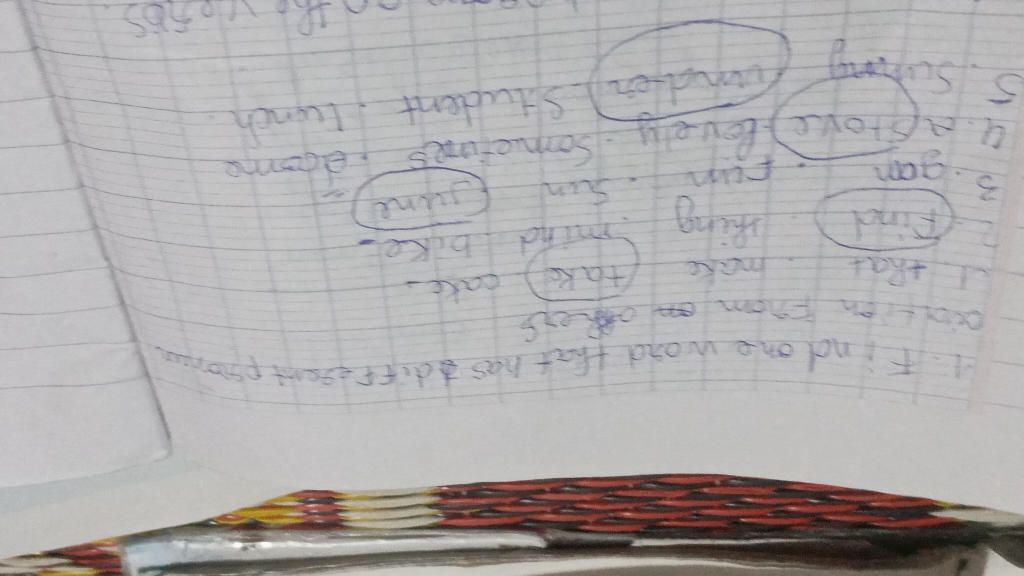 1. Find one word that has different
ciation from others
1. that . make . take cake
2. Find . thing . mind bike
3. gan . Fun . Sun . June
4. stove lovely . sometimes .
5. Sunny under Student . Lunch
on the